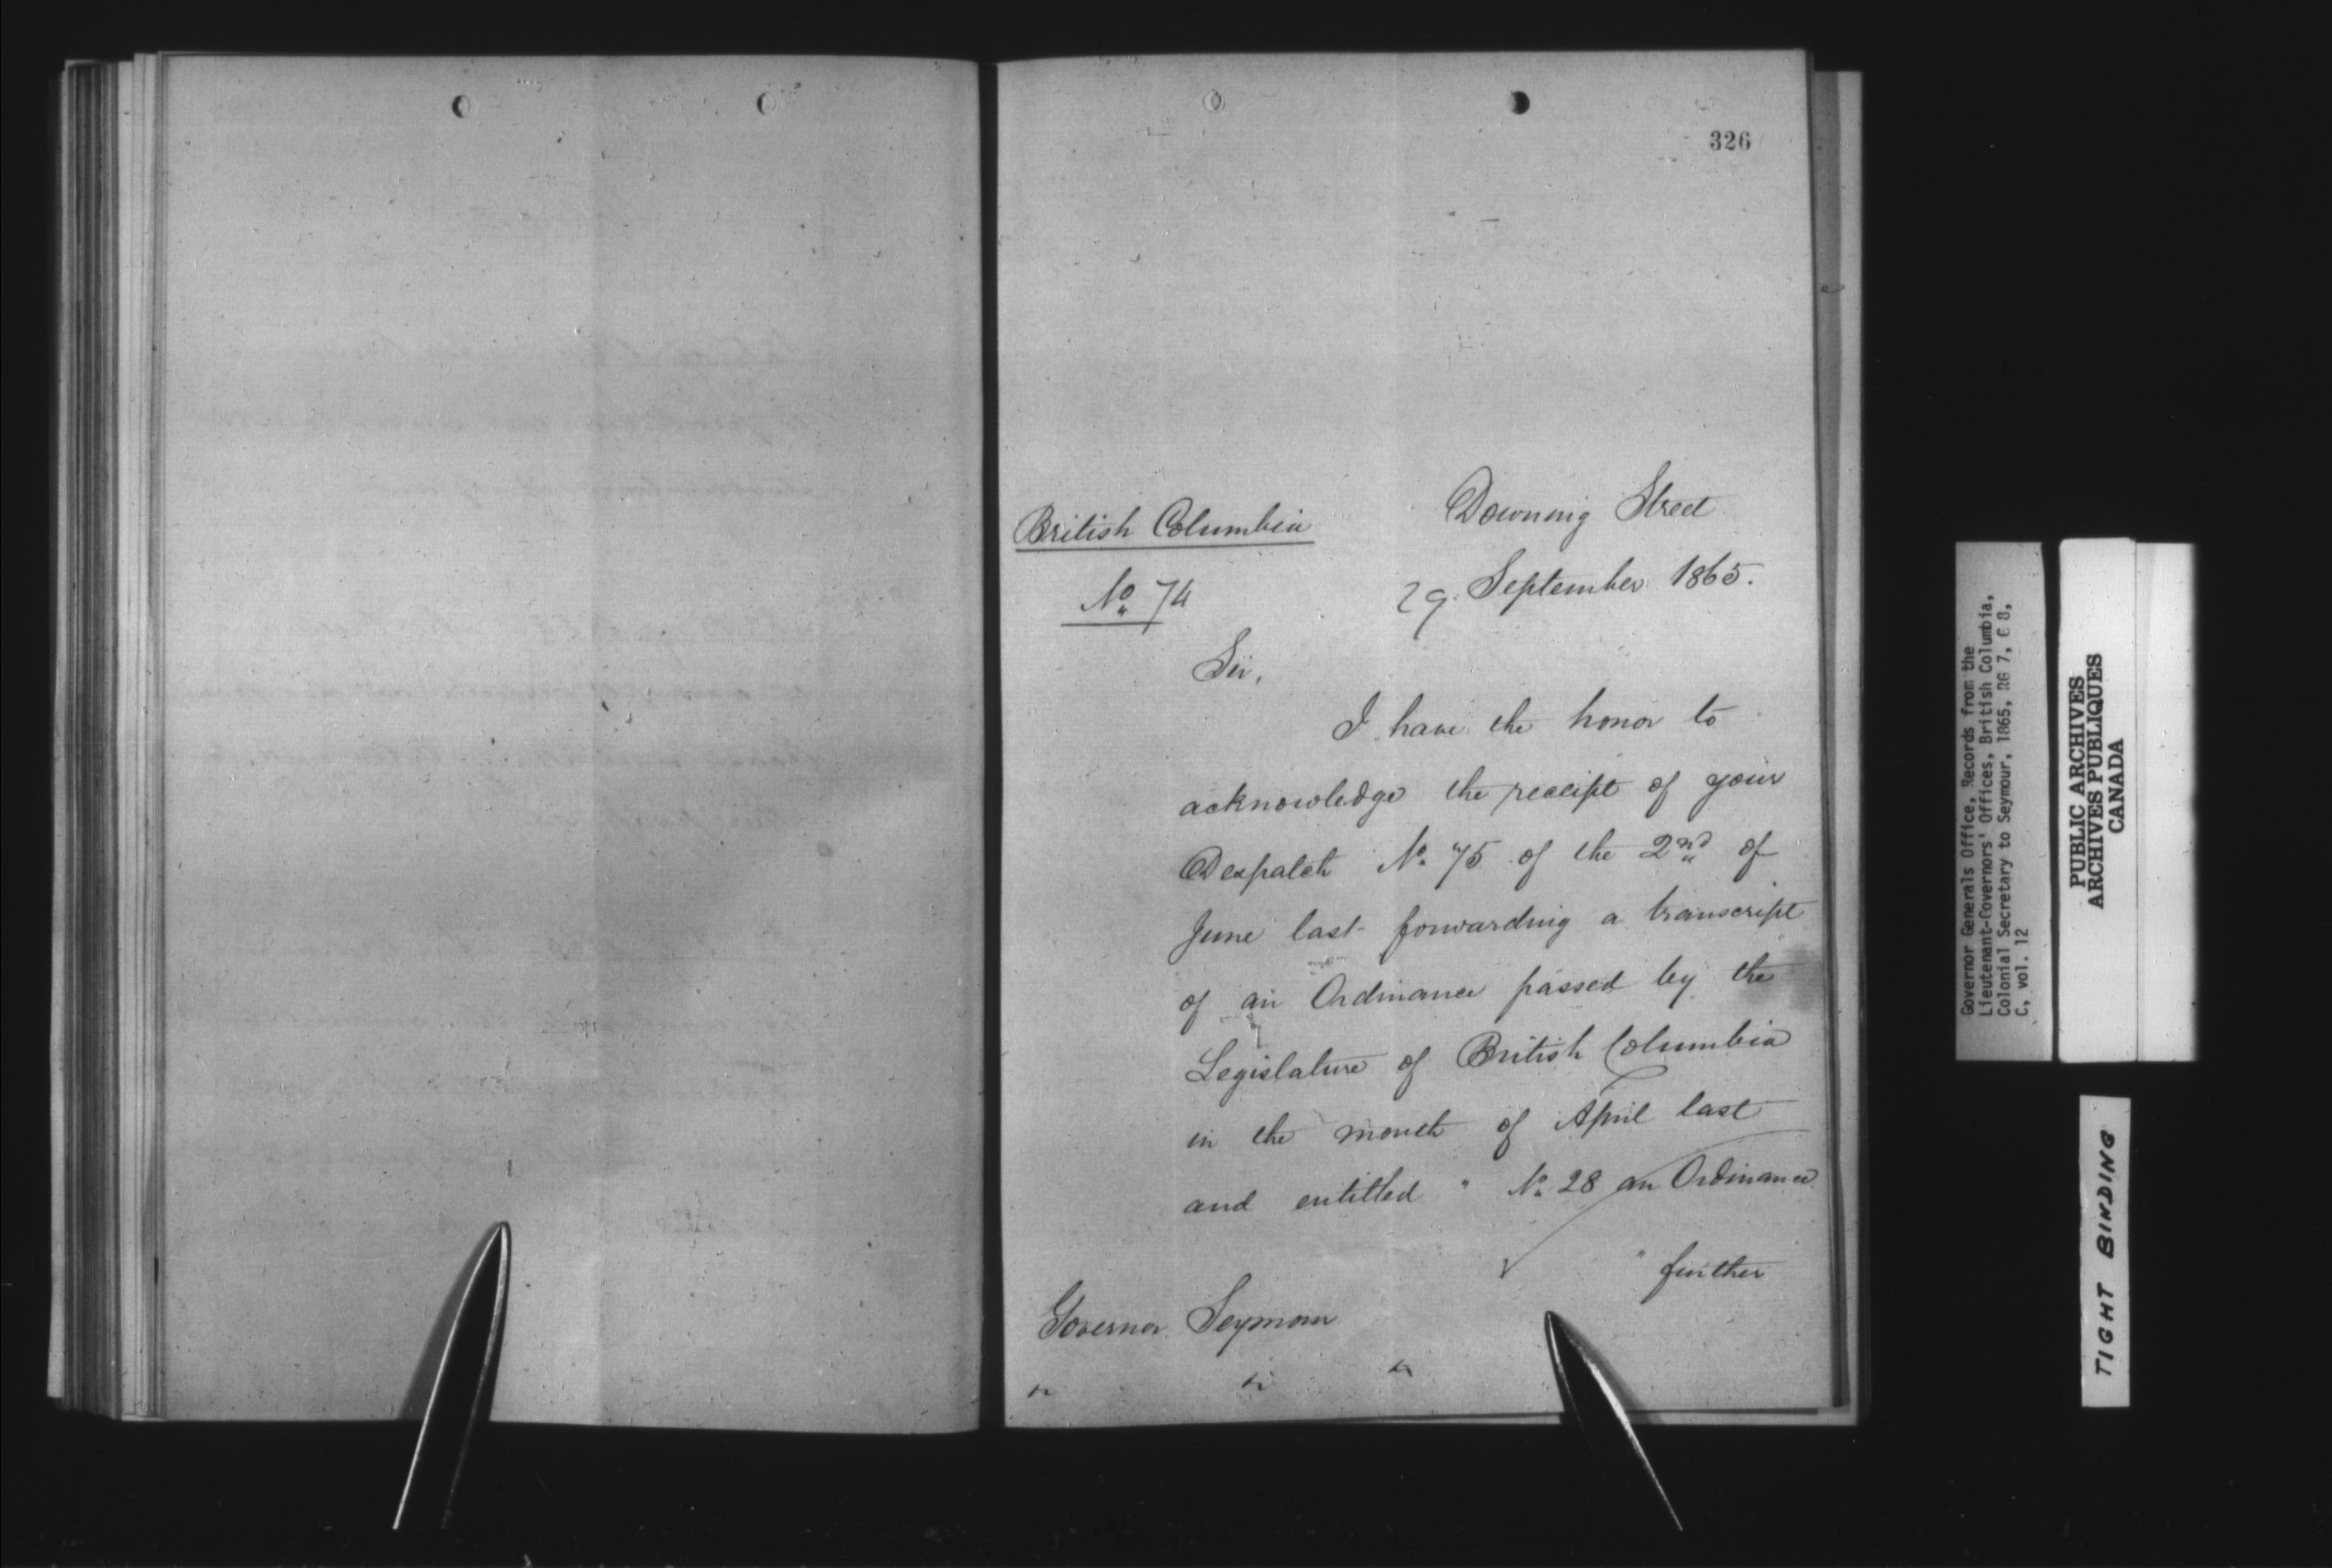 326
British Columbia
Downing Street
No. 74
29. September 1865.
Sir,
I have the honor to
acknowledge the receipt of your
Despatch No. 75 of the 2nd of
June last forwarding a transcript
of an Ordinance passed by the
Legislature of British Columbia
in the month of April last
and entitled " No. 28 an Ordinance
" further
Governor Seymour
Governor Generals Office, Records from the
Lieutenant-Governors' Offices, British Columbia,
Colonial Secretary to Seymour, 1865, RG 7, G 8,
C, vol. 12
PUBLIC ARCHIVES
ARCHIVES PUBLIQUES
CANADA
TIGHT BINDING